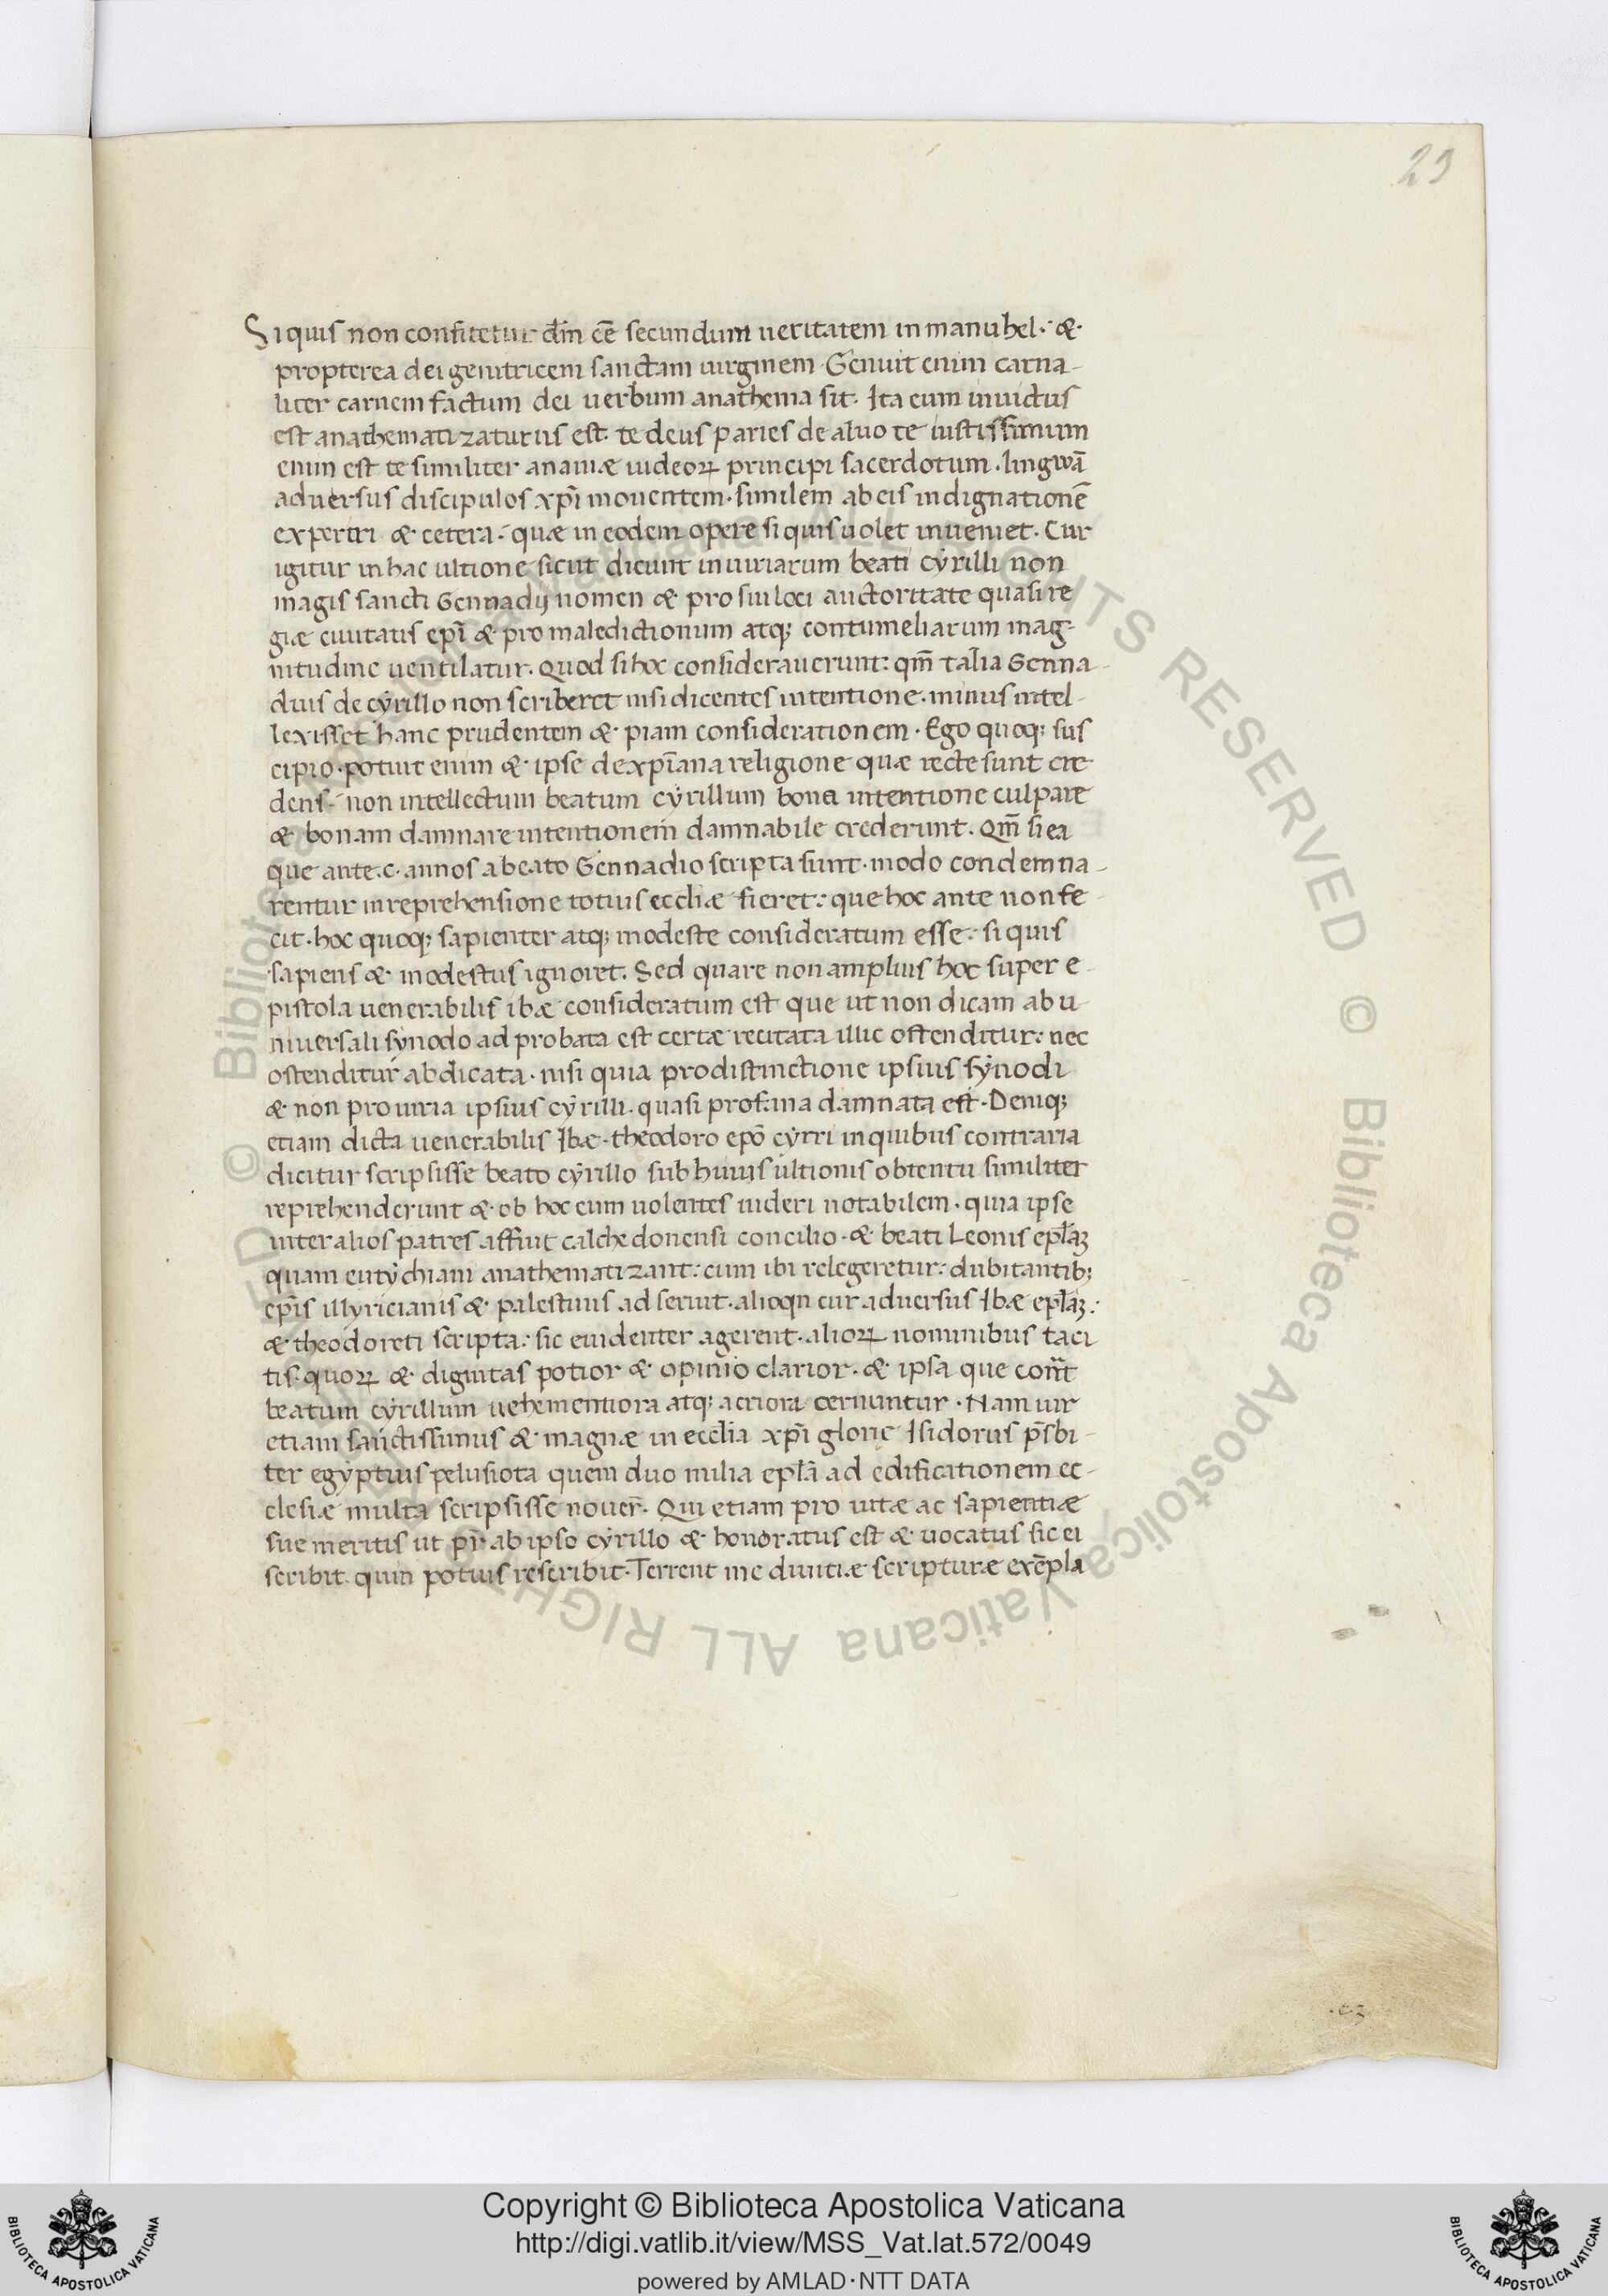 23
Si quis non confitetur dm̄ eē secundum ueritatem inmanuhel· &·
propterea dei genitricem sanctam uirginem· Genuit enim carna-
liter carnem factum dei uerbum anathema sit. Ita cum inuictus
est anathematizaturus est. te deus paries de aluo te iustissimum
enim est te similiter ananiæ iudeoꝝ principi sacerdotum. lingwā
aduersus discipulos xp̄i mouentem. similem ab eis indignationē
expertri & cetera· quæ in eodem opere si quis uolet inueniet. Cur
igitur in hac ultione sicut dicunt iniuriarum beati cyrilli non
magis sancti Gennadij nomen & pro sui loci auctoritate quasi re
giæ ciuitatis ep̄i & pro maledictionum atq; contumeliarum mag-
nitudine uentilatur. Quod si hoc considerauerunt: qm̄ talia Genna-
dius de cyrillo non scriberet nisi dicentes intentione. minus intel-
lexisset hanc prudentem & piam considerationem. Ego quoq; sus
cipio. potuit enim & ipse de xp̄iana religione quæ recte sunt cre
dens· non intellectum beatum cyrillum bona intentione culpare
& bonam damnare intentionem damnabile crederunt. Qm̄ si ea
que ante .c. annos a beato Gennadio scripta sunt. modo condemna-
rentur in reprehensione totius eccliæ fieret: que hoc ante non fe-
cit. hoc quoq; sapienter atq; modeste consideratum esse· si quis
sapiens & modestus ignoret. Sed quare non amplius hoc super e-
pistola uenerabilis ibæ consideratum est que ut non dicam ab u-
niuersali synodo ad probata est certæ recitata illic ostenditur: nec
ostenditur abdicata. nisi quia pro distinctione ipsius synodi
& non pro iniuria ipsius cyrilli. quasi profana damnata est. Deniq;
etiam dicta uenerabilis Ibæ· theodoro epō cyrri in quibus contraria
dicitur scripsisse beato cyrillo sub huius ultionis obtentu similiter
reprehenderunt & ob hoc eum uolentes uideri notabilem. quia ipse
inter alios patres affuit calchedonensi concilio. & beati Leonis epl̄aʒ
quam eutychiam anathematizant: cum ibi relegeretur: dubitantib;
ep̄is illyricianis & palestinis adseruit. alioqn cur aduersus Ibæ epl̄aʒ:
& theodoreti scripta: sic euidenter agerent. alioꝝ nominibus taci
tis. quoꝝ & dignitas potior & opinio clarior. & ipsa que cont̄
beatum cyrillum uehementiora atq; acriora cernuntur. Nam uir
etiam sanctissimus & magnæ in ecclia xp̄i glorię Isidorus p̄sbi-
ter egyptius pelusiota quem duo milia epl̄a ad edificationem ec-
clesiæ multa scripsisse nouer̄. Qui etiam pro uitæ ac sapientiæ
sue meritis ut pr̄ ab ipso cyrillo & honoratus est & uocatus sic ei
scribit. quin potius rescribit. Terrent me diuitiæ scripturæ exēpla
.c.2
Copyright © Biblioteca Apostolica Vaticana
http://digi.vatlib.it/view/MSS_Vat.lat.572/0049
powered by AMLAD·NTT DATA
BIBLIOTECA APOSTOLICA VATICANA
BIBLIOTECA APOSTOLICA VATICANA